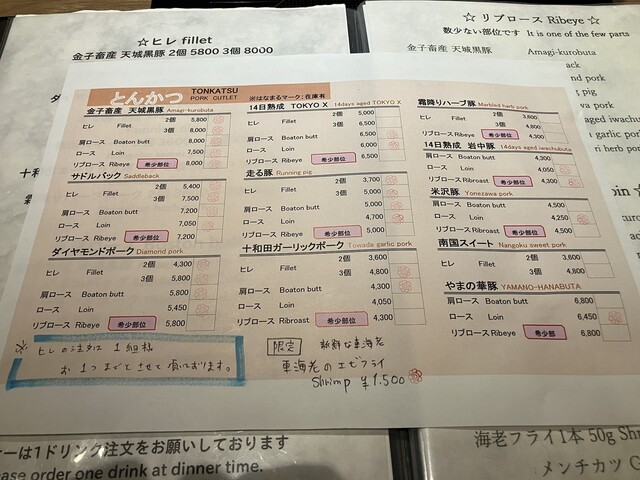 ☆ヒレ fillet
金子畜産 天城黒豚 2個 5800 3個 8000
☆ リブロース Ribeye ☆
数少ない部位です It is one of the few parts
金子畜産 天城黒豚 Amagi-kurobuta
とんかつ TONKATSU PORK CUTLET ※はなまるマーク:在庫有
金子畜産 天城黒豚 Amagi-kurobuta
ヒレ Fillet 2個 5,800
3個 8,000
肩ロース Boaton butt 8,000
ロース Loin 7,500
リブロース Ribeye 希少部位 8,000
サドルバック Saddleback
ヒレ Fillet 2個 5,400
3個 7,500
肩ロース Boaton butt 7,200
ロース Loin 7,050
リブロース Ribeye 希少部位 7,200
ダイヤモンドポーク Diamond pork
ヒレ Fillet 2個 4,300
3個 5,800
肩ロース Boaton butt 5,800
ロース Loin 5,450
リブロース Ribeye 希少部位 5,800
14日熟成 TOKYO X 14days aged TOKYO X
ヒレ Fillet 2個 5,000
3個 6,500
肩ロース Boaton butt 6,500
ロース Loin 6,000
リブロース Ribeye 希少部位 6,500
走る豚 Running pig
ヒレ Fillet 2個 3,700
3個 5,000
肩ロース Boaton butt 5,000
ロース Loin 4,700
リブロース Ribeye 希少部位 5,000
十和田ガーリックポーク Towada garlic pork
ヒレ Fillet 2個 3,600
3個 4,800
肩ロース Boaton butt 4,300
ロース Loin 4,050
リブロース Ribroast 希少部位 4,300
霜降りハーブ豚 Marbled herb pork
ヒレ Fillet 2個 3,600
3個 4,800
リブロース Ribeye 希少部位 4,300
14日熟成 岩中豚 14days aged iwachubuta
肩ロース Boaton butt 4,300
ロース Loin 4,050
リブロース Ribroast 希少部位 4,300
米沢豚 Yonezawa pork
肩ロース Boaton butt 4,500
ロース Loin 4,250
リブロース Ribroast 希少部位 4,500
南国スイート Nangoku sweet pork
ヒレ Fillet 2個 3,600
3個 4,800
やまの華豚 YAMANO-HANABUTA
肩ロース Boaton butt 6,800
ロース Loin 6,450
リブロース Ribeye 希少部位 6,800
※ ヒレの注文は 1組様
お1つまでとさせて頂いております。
限定 新鮮な車海老
車海老のエビフライ
Shrimp ¥1,500
ack
nd pork
pig
wa pork
aged iwachu
garlic por
ri herb por
oin ☆
ーは1ドリンク注文をお願いしております
ase order one drink at dinner time.
海老フライ1本 50g Shr
メンチカツ G